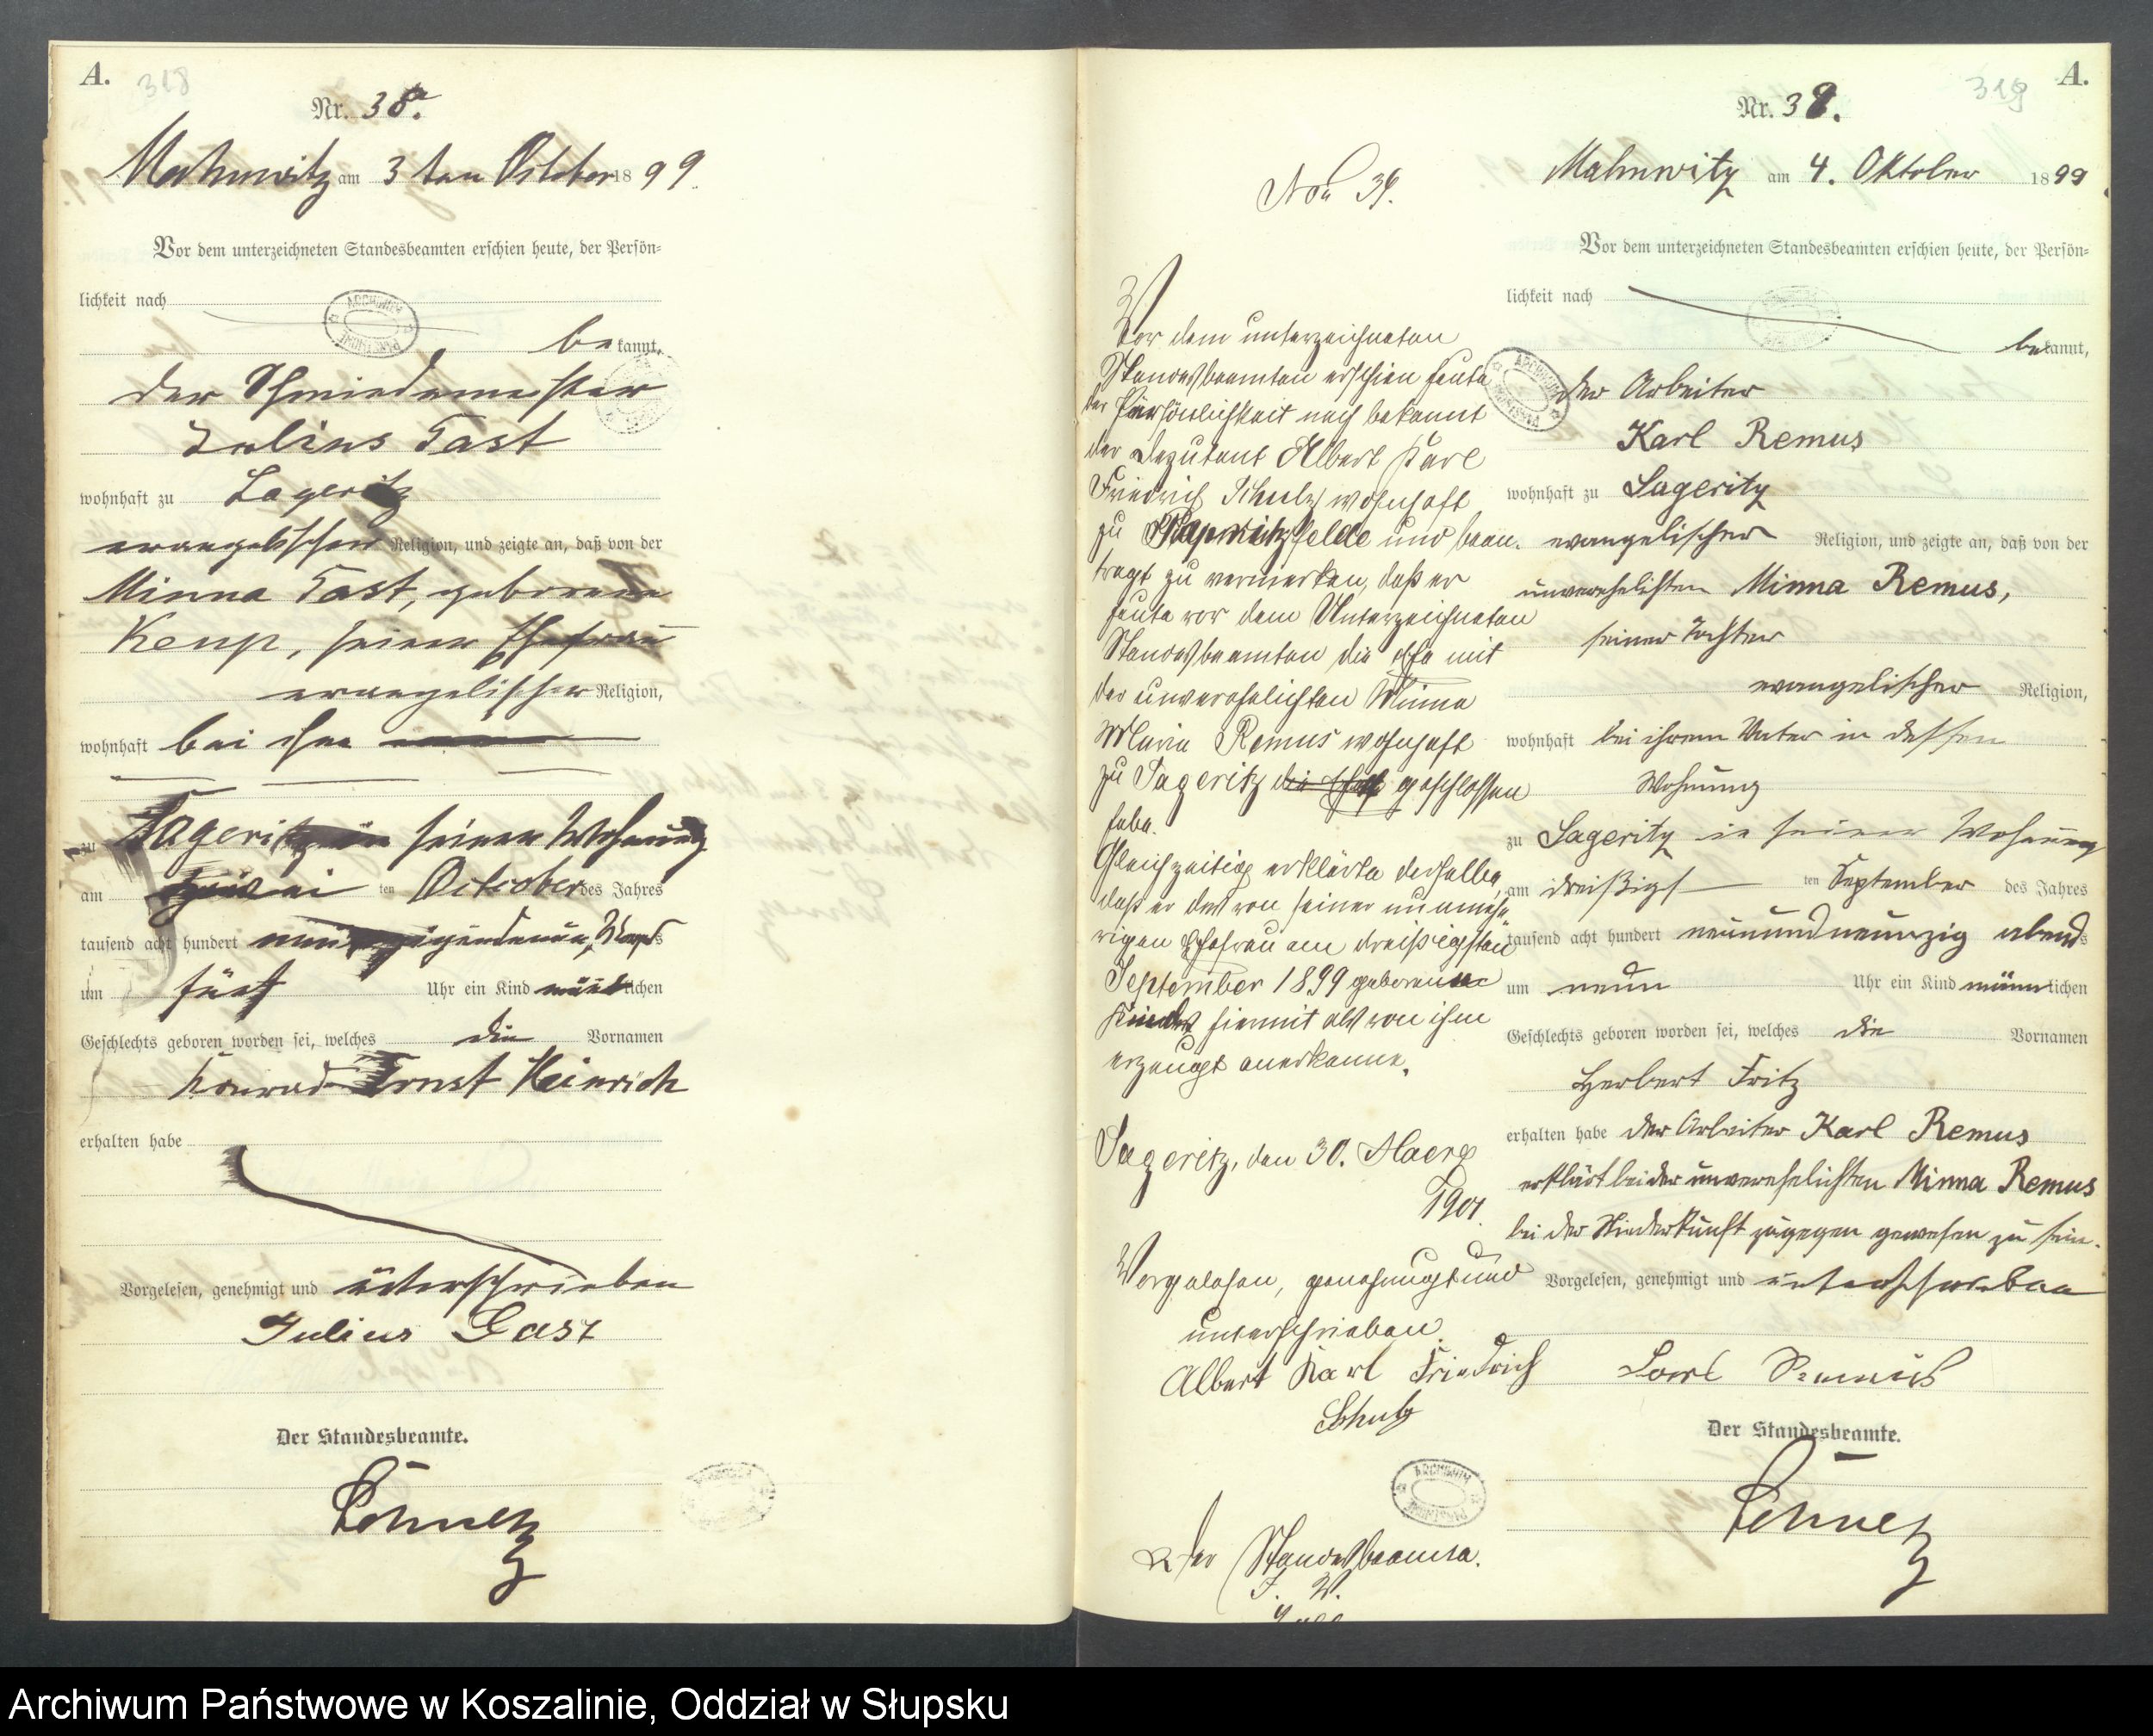 A.
318
Nr. 38.
Mahnwitz am 3 ten October 1899.
Vor dem unterzeichneten Standesbeamten erschien heute, der Persön=
lichkeit nach
bekannt,
der Schmiedemeister
Julius Gast
wohnhaft zu Sageritz
evangelischer Religion, und zeigte an, daß von der
Minna Gast, geborene
Kenp, seiner Ehefrau
evangelischer Religion,
wohnhaft bei ihm
zu Sageritz in seiner Wohnung
am zwei ten October des Jahres
tausend acht hundert
um fünf Uhr ein Kind männlichen
Geschlechts geboren worden sei, welches die Vornamen
Konrad Ernst Heinrich
erhalten habe
Vorgelesen, genehmigt und unterschrieben
Julius Gast
Der Standesbeamte.
A.
319
Nr. 39.
Mahnwitz am 4. Oktober 1899
Vor dem unterzeichneten Standesbeamten erschien heute, der Persön=
lichkeit nach
bekannt,
der Arbeiter
Karl Remus
wohnhaft zu Sageritz
evangelischer Religion, und zeigte an, daß von der
unverehelichten Minna Remus,
seiner Tochter
evangelischer Religion,
wohnhaft bei ihrem Vater in dessen
Wohnung
zu Sageritz in seiner Wohnung
am dreißigsten September des Jahres
tausend acht hundert neunundneunzig abends
um neun Uhr ein Kind männlichen
Geschlechts geboren worden sei, welches die Vornamen
Herbert Fritz
erhalten habe der Arbeiter Karl Remus
erklärt bei der unverehelichten Minna Remus
bei der Niederkunft zugegen gewesen zu sein.
Vorgelesen, genehmigt und unterschrieben
Karl Remus
Der Standesbeamte.
No 39.
Vor dem unterzeichneten
Standesbeamten erschien heute
der Persönlichkeit nach bekannt
der Deputant Albert Karl
Friedrich Schulz wohnhaft
zu und bean-
tragt zu vermerken, daß er
heute vor dem Unterzeichneten
Standesbeamten die Ehe mit
der unverehelichten Minna
Maria Remus wohnhaft
zu Sageritz die Ehe geschlossen
habe.
Gleichzeitig erklärte derselbe,
daß er das von seiner nunmeh-
rigen Ehefrau am dreißigsten
September 1899 geborene
Kind hiermit als von ihm
erzeugt anerkenne.
Sageritz, den 30. Maerz
1901.
Vorgelesen, genehmigt und
unterschrieben.
Albert Karl Friedrich
Schulz
Der Standesbeamte.
J. V.
Archiwum Państwowe w Koszalinie, Oddział w Słupsku